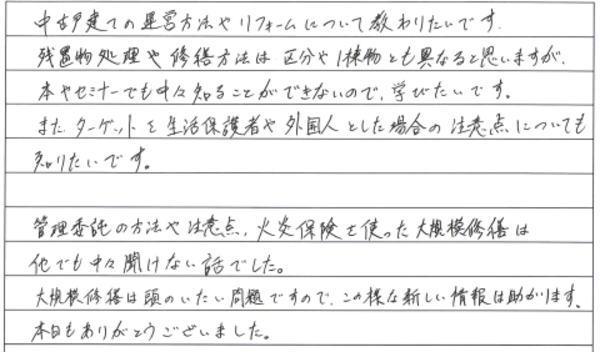 中古戸建ての運営方法やリフォームについて教わりたいです.
残置物処理や修繕方法は区分や1棟物とも異なると思いますが、
本やセミナーでも中々知ることができないので、学びたいです。
またターゲットを生活保護者や外国人とした場合の注意点についても
知りたいです。
管理委託の方法や注意点、火災保険を使った大規模修繕は
他でも中々聞けない話でした。
大規模修繕は頭のいたい問題ですので、この様な新しい情報は助かります。
本日もありがとうございました。